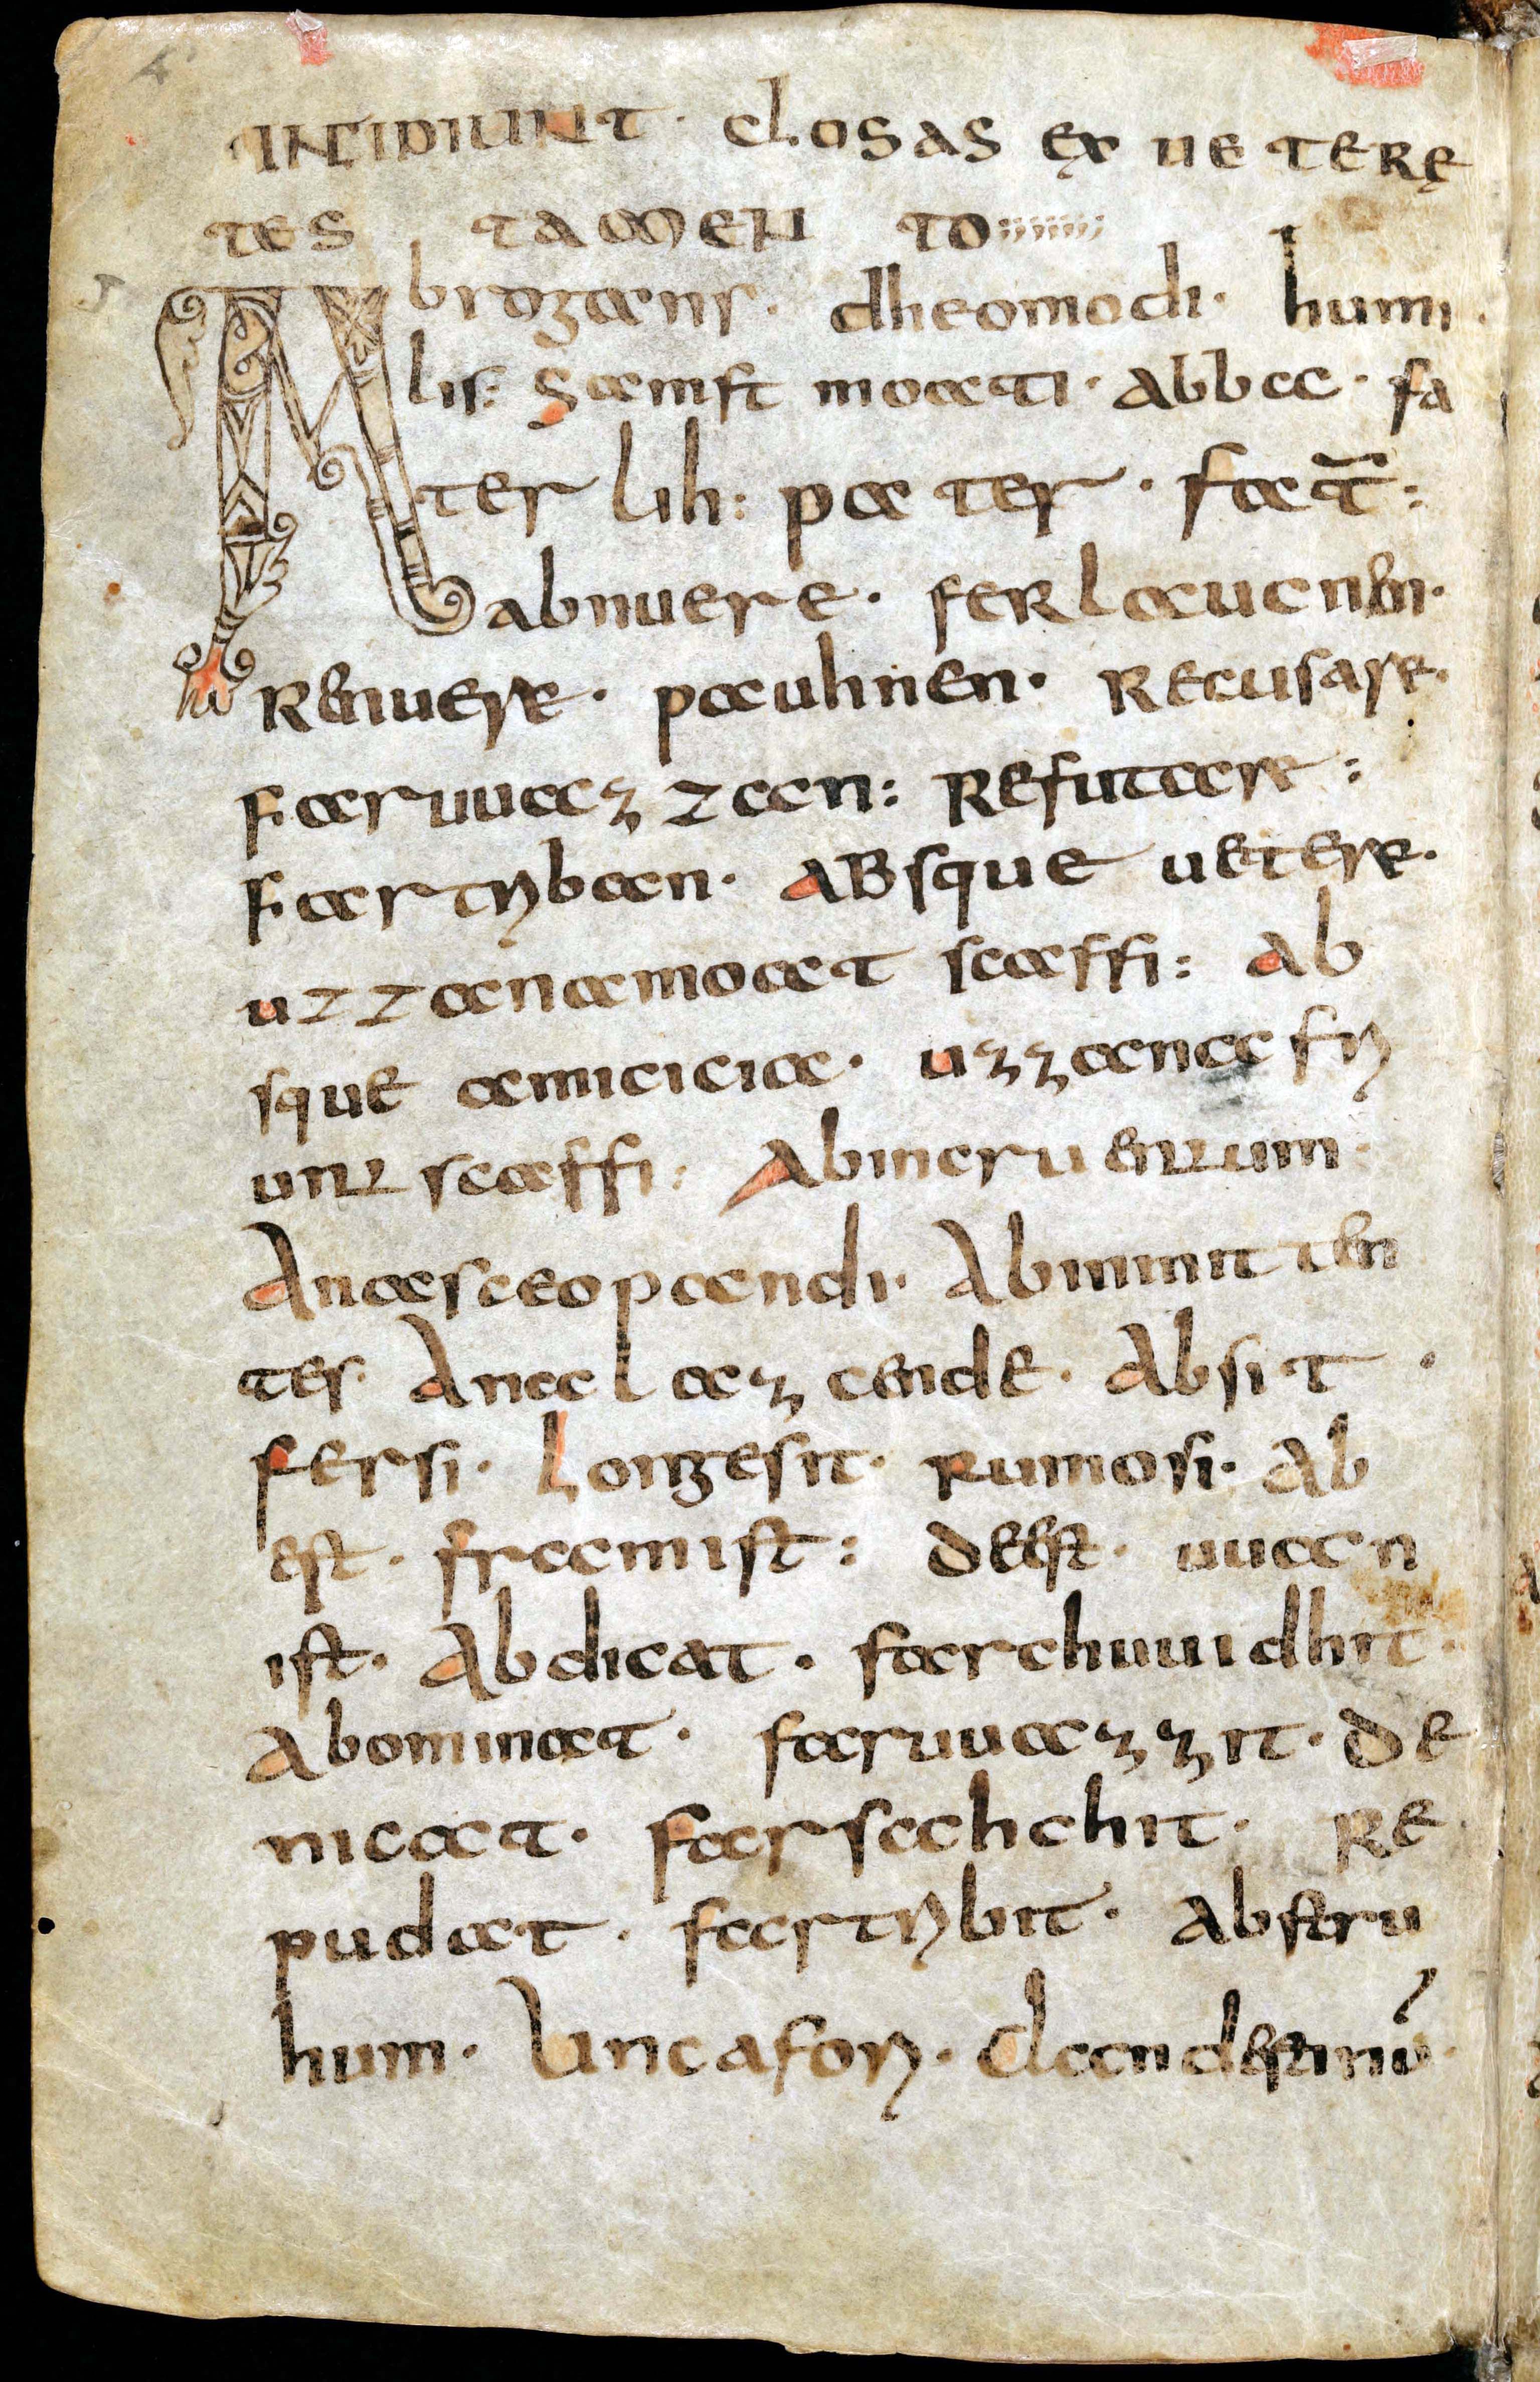 INCIPIUNT · CLOSAS EX UETERĘ
TES TAMEN TO
Abrogans · dheomodi · humi
lis: samft moati · abba · fa
terlih: pater · fat̄:
abnuere · ferlaucnen ·
Renuere · pauhnen · Recusare ·
faruuazzan: Refutare:
fartriban · ABsque uetere ·
uzzana moat scaffi: Ab
sque amicicia · uzzana fri
untscaffi: Abincruentum ·
Anasceopandi · Abinmitten
tes · Analazcende · Absit ·
fersi · Longesit · rumosi · Ab
est · framist: Deest · uuan
ist · Abdicat · farchuuidhit ·
Abominat · faruuazzit · De
nicat · farsahchit · Re
pudat · fartribit · Abstru
hum · Uncafori · Clandestinu ·